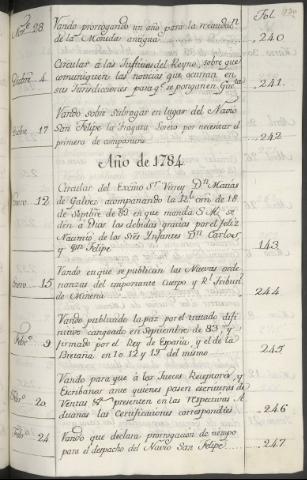 Fol.
Nov.e 28 Vando prorrogando un año para la recaudon
de la Moneda antigua 240
Diciembre 4 Circular à las Justicias del Reyno, sobre que
comuniquen las noticias que ocurran en
sus Jurisdicciones para qe se pongan en Gaceta 241.
17 Vando sobre subrogar en lugar del Navio
San Felipe la Fragata por necesitar el
primero de composicion 242
Año de 1784.
Enero 12 Circular del Excmo Sr Virrey Dn Matias
de Galvez acompañando la Rl orn de 18 de
Septbre de 83 en que manda S. M. se
den à Dios las debidas gracias por el feliz
Nacimto de los Srs Infantes Dn Carlos
y Dn Felipe 143
Enero 15 Vando en que se publican las Nuevas orde-
nanzas del importante Cuerpo y Rl Tribunl
de Mineria 244
Febro 9 Vando publicando la paz por el tratado difi-
nitivo cangeado en Septiembre de 83, y
firmado por el Rey de España, y el de la
Bretaña en 10 12 y 19 del mismo 245
Febro 20 Vando para que à los Jueces Receptores, y
Escribanos ante quienes pasen escrituras de
Ventas &a presenten en las respectivas A-
duanas las Certificaciones correspondtes 246
Febro 24 Vando que declara prorrogacion de tiempo
para el despacho del Navio San Felipe 247